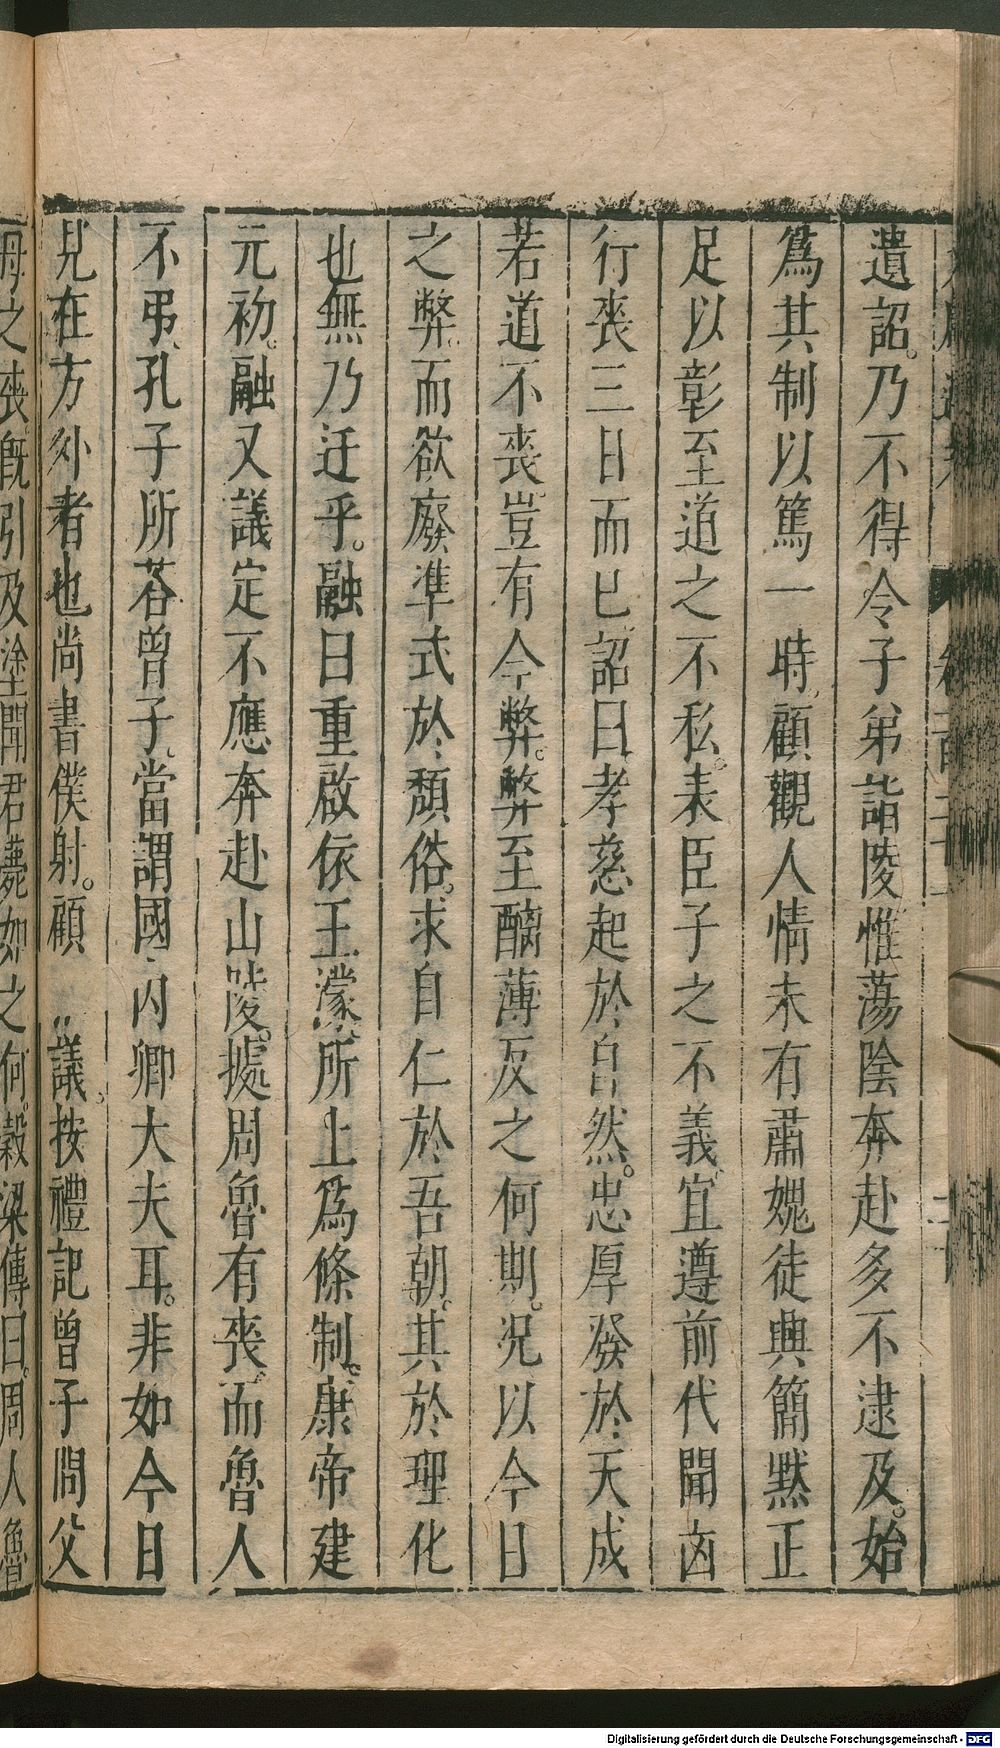 遺詔。乃不得令子弟詣陵惟蕩陰奔赴多不逮及。始
爲其制以篤一時顧觀人情未有肅媿徒興簡黙正
足以彰至道之不私。表臣子之不義宜遵前代聞凶
行喪三日而已詔曰孝慈起於自然。忠厚發於天成
若道不喪。豈有今弊。弊至醨薄反之何期。况以今日
之弊而欲廢準式於頹俗。求自仁於吾朝。其於理化
也無乃迂乎。融曰重啟依王濛所上爲條制。康帝建
元初。融又議定不應奔赴山陵。據周魯有喪而魯人
不弔孔子所荅曾子當謂國内卿大夫耳。非如今日
見在方外者也尚書僕射。顧 議。按禮記曾子問父
母之喪旣引及塗聞君薨如之何。穀梁傳曰。周人魯
Digitalisierung gefördert durch die Deutsche Forschungsgemeinschaft - DFG